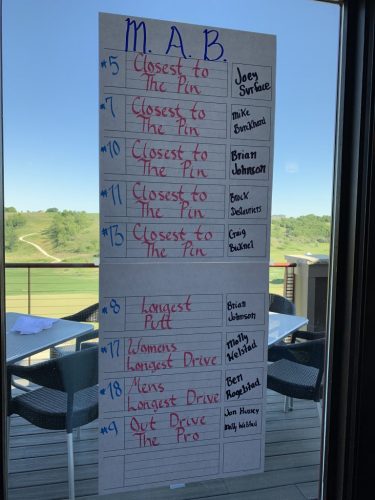 M. A. B.
#5 Closest to The Pin Joey Surface
#7 Closest to The Pin Mike
#10 Closest to The Pin Brian Johnson
#11 Closest to The Pin Brock Deslauriers
#13 Closest to The Pin Craig
#8 Longest Putt Brian Johnson
#17 Womens Longest Drive Molly Welstad
#18 Mens Longest Drive Ben
#9 Out Drive The Pro Jon Molly Welstad